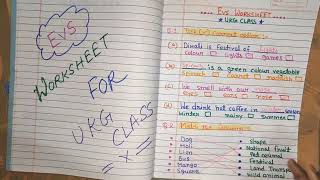 EVS
WORKSHEET
FOR
UKG
CLASS
EVS WORKSHEET
UKG CLASS
Q.1 Tick (✓) correct option :-
(a) Diwali is festival of lights
colour lights games
(b) Spinach is a green colour vegetable
Spinach carrot
(c) We smell our nose
eyes ears
(d) We drink hot coffee in winter season
winter rainy summer
Q.2 Match the
Dog Shape
Holi National fruit
Lion Pet animal
Bus Festival
Mango Land Transport
Square Wild animal